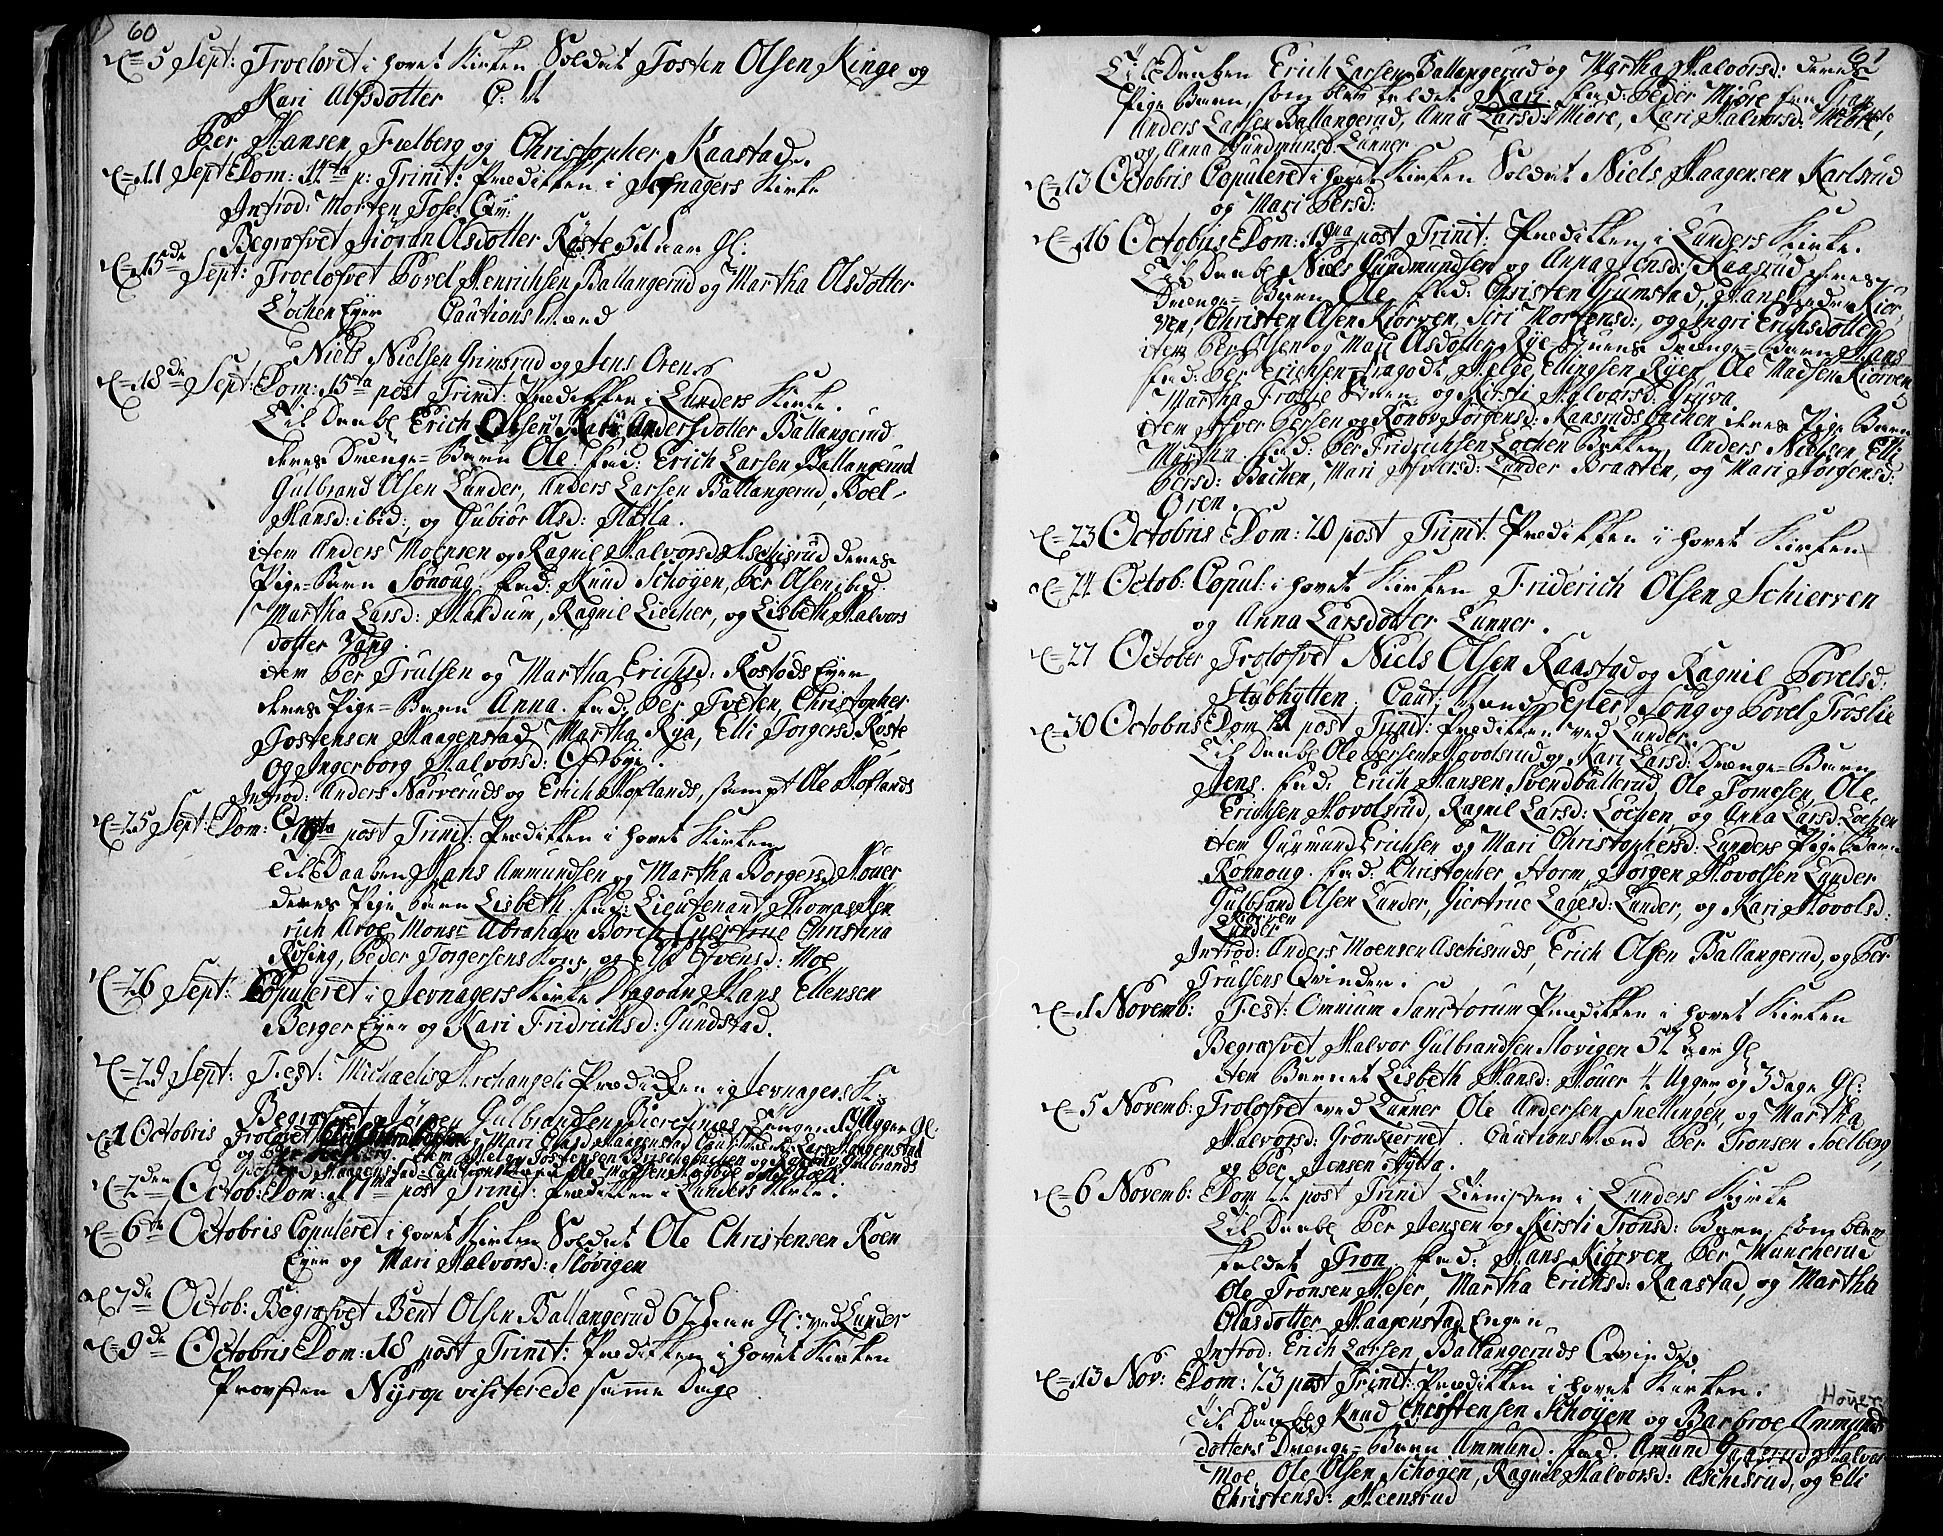 60
5 Sept: Troelovet i hovet Kirken Soldat Tosten Olsen Kinge og
Kari Alfsdotter C: M
Per Hansen Fuelberg og Christopher Raastad.
11 Sept Dom: 14ta p: Trinit: Prædiken i Jefnagers Kirke
Introd: Morten Toses Qv:
Begrafvet Jiöran Asdotter Röste 51 aar Gl:
15de Sept: Troelofvet Povel Henrichsen Ballangerud og Martha Olsdotter
Lochen Eyer Cautions Mænd
Niels Nielsen Grimsrud og Jens Oren
18de Sept: Dom: 15ta post Trinit: Prædiken i Lunders Kirke.
Til Daabe Erich Olsen Kari Andersdotter Ballangerud
deres Drenge-Barn Ole. fad: Erich Larsen Ballangerud
Gulbrand Olsen Lunder, Anders Larsen Ballangerud, Boel
Hansd: ibid:, og Gubiör Asd: Hatla.
item Anders Moensen og Ragnil Halvorsd: Aschisrud deres
Pige-Barn Sönoug. fad: Knud Schöyen, Per Olsen ibid.
Martha Larsd: Haldum, Ragnil Liecher, og Lisbeth Halvors
dotter Vang.
item Per Trulsen og Martha Erichsd: Rostods Eyer
deres Pige-Barn Anna. fad: Per Tveten, Christopher
Tostensen Haagenstad, Martha Rya, Elli Torgersd Röste
og Ingerborg Halvorsd: Ofsbye.
Introd: Anders Narveruds og Erich Hoflands, samt Ole Hoflands
Qv:
25 Sept: Dom: 16ta post Trinit: Prædiken i hovet Kirken
Til Daaben Hans Ammundsen og Martha Borgersd Houer
deres Pige Barn Lisbeth. fad: Lieutenant Thomas Hen
rich Aroe Monsr Abraham Borch Giertrue Christina
Rosing, Peder Torgersens Kone, og Else Evensd: Moe
26 Sept: Copuleret i Jevnagers Kirke Dragoun Hans Ellensen
Berger Eyer og Kari Fridrichsd: Gundstad.
29 Sept: Fest: Michaelis Archangeli Prædiken i Jevnagers K:
Begrafvet Jörgen Gulbrandsen Ugger Gl:
1 Octobris Trolovet Mari Olsd Haagenstad Caut: Lars Haugenstad
og Item Helge Tostensen og Gulbrands
Haagenstad: Cautions
2den Octob: Dom: 17ma post Trinit: Prædiken i Lunders Kirke.
6te Octobris Copuleret i hovet Kirken Soldat Ole Christensen Roen
Eyer og Mari Halvorsd: Slövigen
7de Octob: Begrafvet Bent Olsen Ballangerud 67 aar Gl: ved Lunder
9de Octobris Dom: 18 post Trinit: Prædiken i hovet Kirken
Provsten Nyrop visiterede samme Dage
61
Til Daaben Erich Larsen Ballangerud og Martha Halvorsd: deres
Pige Barn, som blev kaldet Kari. fad: Peder Miöre fra Gran
Anders Larsen Ballangerud, Anna Larsd: Miöre, Kari Halvorsd: Miöre,
og Anna Gundmunsd: Lunner
13 Octobris Copuleret i hovet Kirken Soldat Niels Haagensen Karlsrud
og Mari Persd:
16 Octobris Dom: 19na post Trinit: Prædiken i Lunders Kirke.
Til Daabe Niels Gundmundsen og Anna Jensd: Raasrud deres
Drenge-Barn Ole fad: Christen Grimstad, Hans Pedr: Kiör
ven, Christen Olsen Kiörven, Siri Mortensd:, og Ingri Erichsdotter
item Per Olsen og Mari Asdotter Rye deres Drenge-Barn Hans
fad: Per Erichsen Dragod: Helge Ellingsen Ryer, Ole Madsen Kiörven
Martha Froslie og Kirsti Halvorsd: Gruva.
item Iver Persen og Ronoy Jörgensd: Raasrudsbachen deres Pige Barn
Martha. fad: Per Fridrichsen Lochen Anders Nielsen, Elli
Persd: Bachen, Mari Iversd: Lunder Braaten, og Mari Jörgensd:
Oren.
23 Octobris Dom: 20 post Trinit Prædiken i hovet Kirken
24 Octob: Copul: i hovet Kirken Friderich Olsen Schierven
og Anna Larsdotter Lunner.
27 October Trolofvet Niels Olsen Raastad og Ragnil Povelsd:
Stubhytten. Caut: Mænd Eylert Song og Povel Froslie
30 Octobris Dom 21 post Trinit: Prædiken ved Lunder.
Til Daabe Ole Persen Hovolsrud og Kari Larsd: Drenge-Barn
Jens. fad: Erich Hansen Svendballerud, Ole Tomesen, Ole
Erichsen Hovolsrud, Ragnil Larsd: Lochen, og Anna Larsd: Lochen
item Gunmund Erichsen og Mari Christophersd: Lunders Pige-Barn
Ronnoug. fad: Christopher Horm, Jörgen Hovolsen Lunder
Gulbrand Olsen Lunder, Giertrue Lagesd: Lunder, og Kari Hovolsd:
Kiörven
Lunder
Introd: Anders Moensen Aschisruds, Erich Olsen Ballangerud, og Per
Trulsens Qvinder.
1 Novemb: Fest: Omnium Sanctorum Prædiken i hovet Kirken
Begrafvet Halvor Gulbrandsen Slovigen 52 aar Gl
item Barnet Lisbeth Hansd: Houer 4 Uger og 3 dage Gl:
5 Novemb: Trolofvet ved Lunner Ole Andersen Snellingen, og Martha
Halvorsd: Grönkiernet. Cautionsmænd Per Tronsen Soelberg,
og Per Jensen Hytta.
6 Novemb: Dom 22 post Trinit Tienisten i Lunders Kirke
Til Daabe Per Jensen og Kirsti Tronsd: Barn, som blev
kaldet Tron fad: Hans Kiörven, Per Muncherud
Ole Tronsen Hejer, Martha Erichsd: Raastad, og Martha
Olasdotter Haagenstad Engen
Introd: Erich Larsen Ballangeruds Qvinde
13 Nov: Dom: 23 post Trinit: Prædiken i hovet Kirken.
Höuer
Til Daabe Knud Christensen Schöyen og Barbroe Ammunds
dotters Drenge-Barn Ammund. fad. Amund Gaasrud, Halvor
Moe, Ole Olsen Schögen, Ragnil Halvorsd: Aschisrud, og Elli
Christensd: Heensrud